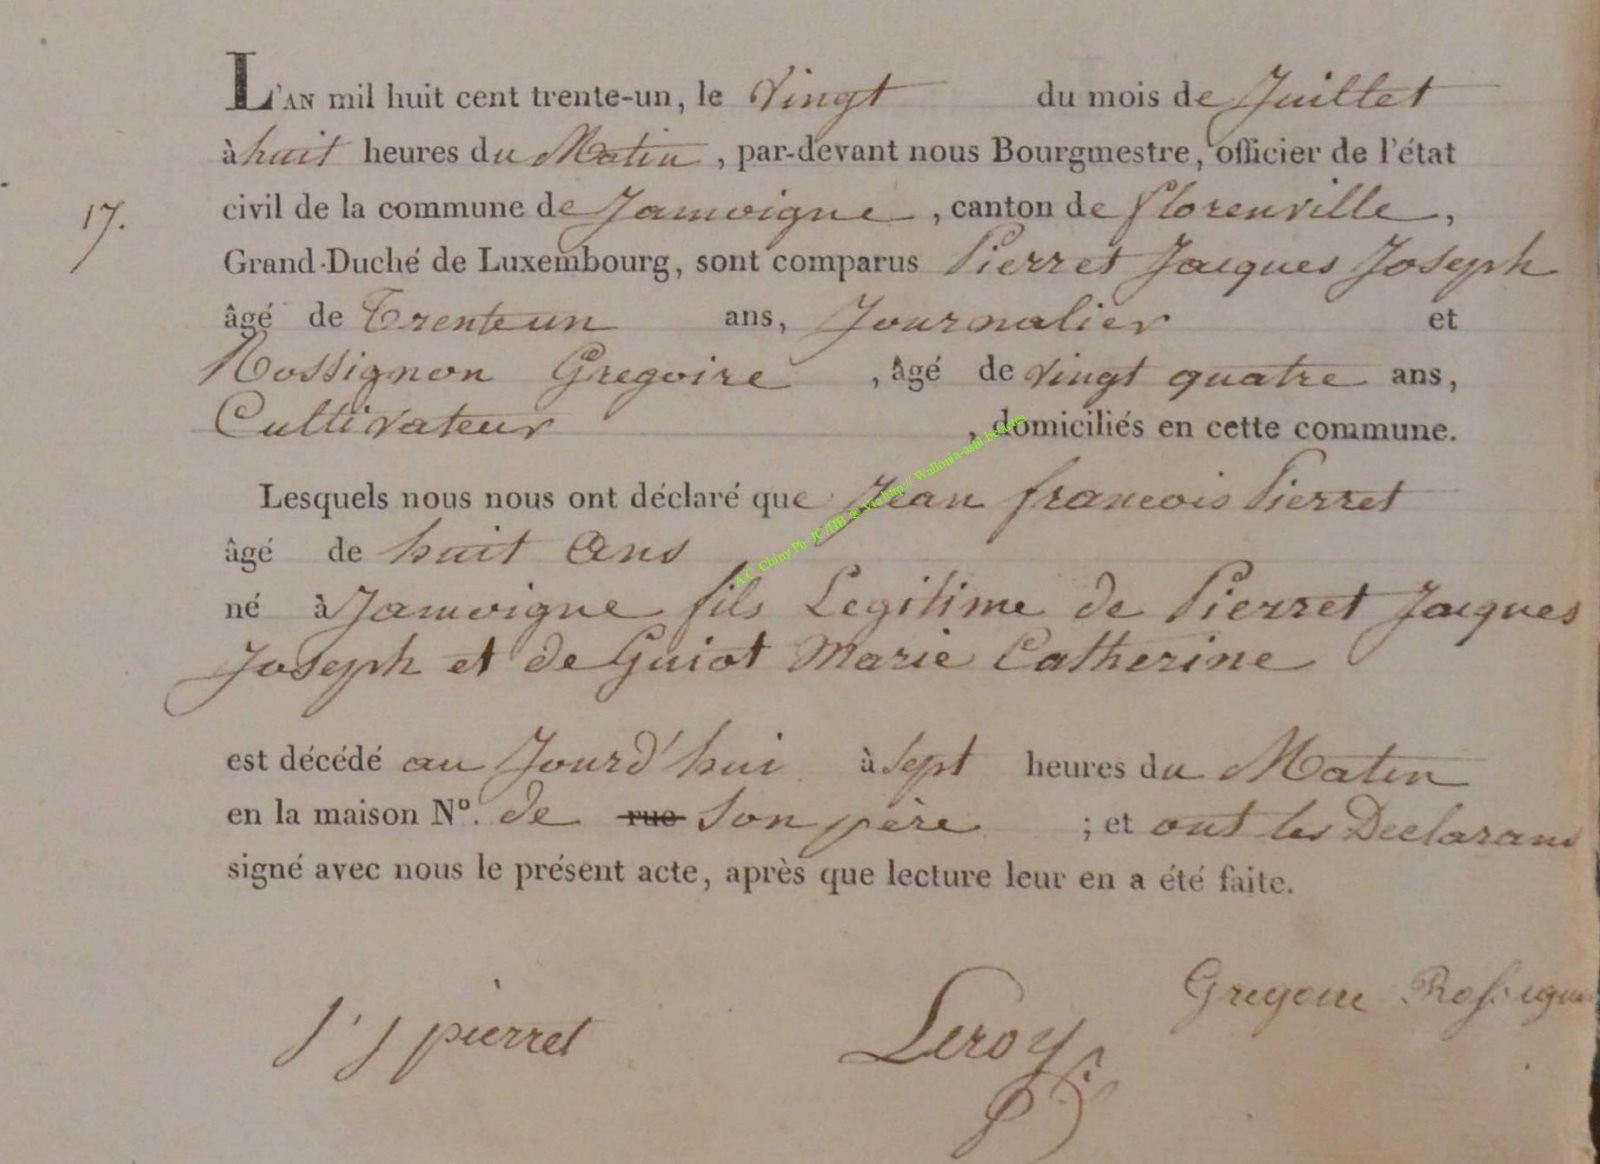 L'AN mil huit cent trente-un, le Vingt du mois de Juillet
à huit heures du Matin, par-devant nous Bourgmestre, officier de l'état
17. civil de la commune de Jamoigne, canton de florenville,
Grand-Duché de Luxembourg, sont comparus Pierret Jacques Joseph
âgé de Trente un ans, Journalier et
Rossignon Gregoire, âgé de vingt quatre ans,
Cultivateur, domiciliés en cette commune.
Lesquels nous nous ont déclaré que Jean francois Pierret
âgé de huit Ans
né à Jamoigne fils Legitime de Pierret Jacques
Joseph et de Guiot Marie Catherine
est décédé au Jourd'hui à Sept heures du Matin
en la maison N°. de rue Son père; et ont les Declarans
signé avec nous le présent acte, après que lecture leur en a été faite.
Gregoire Rossignon
J J pierret Leroy
A.C. Chiny Ph JC/HB @ Via http:// Wallonia-asbl.be